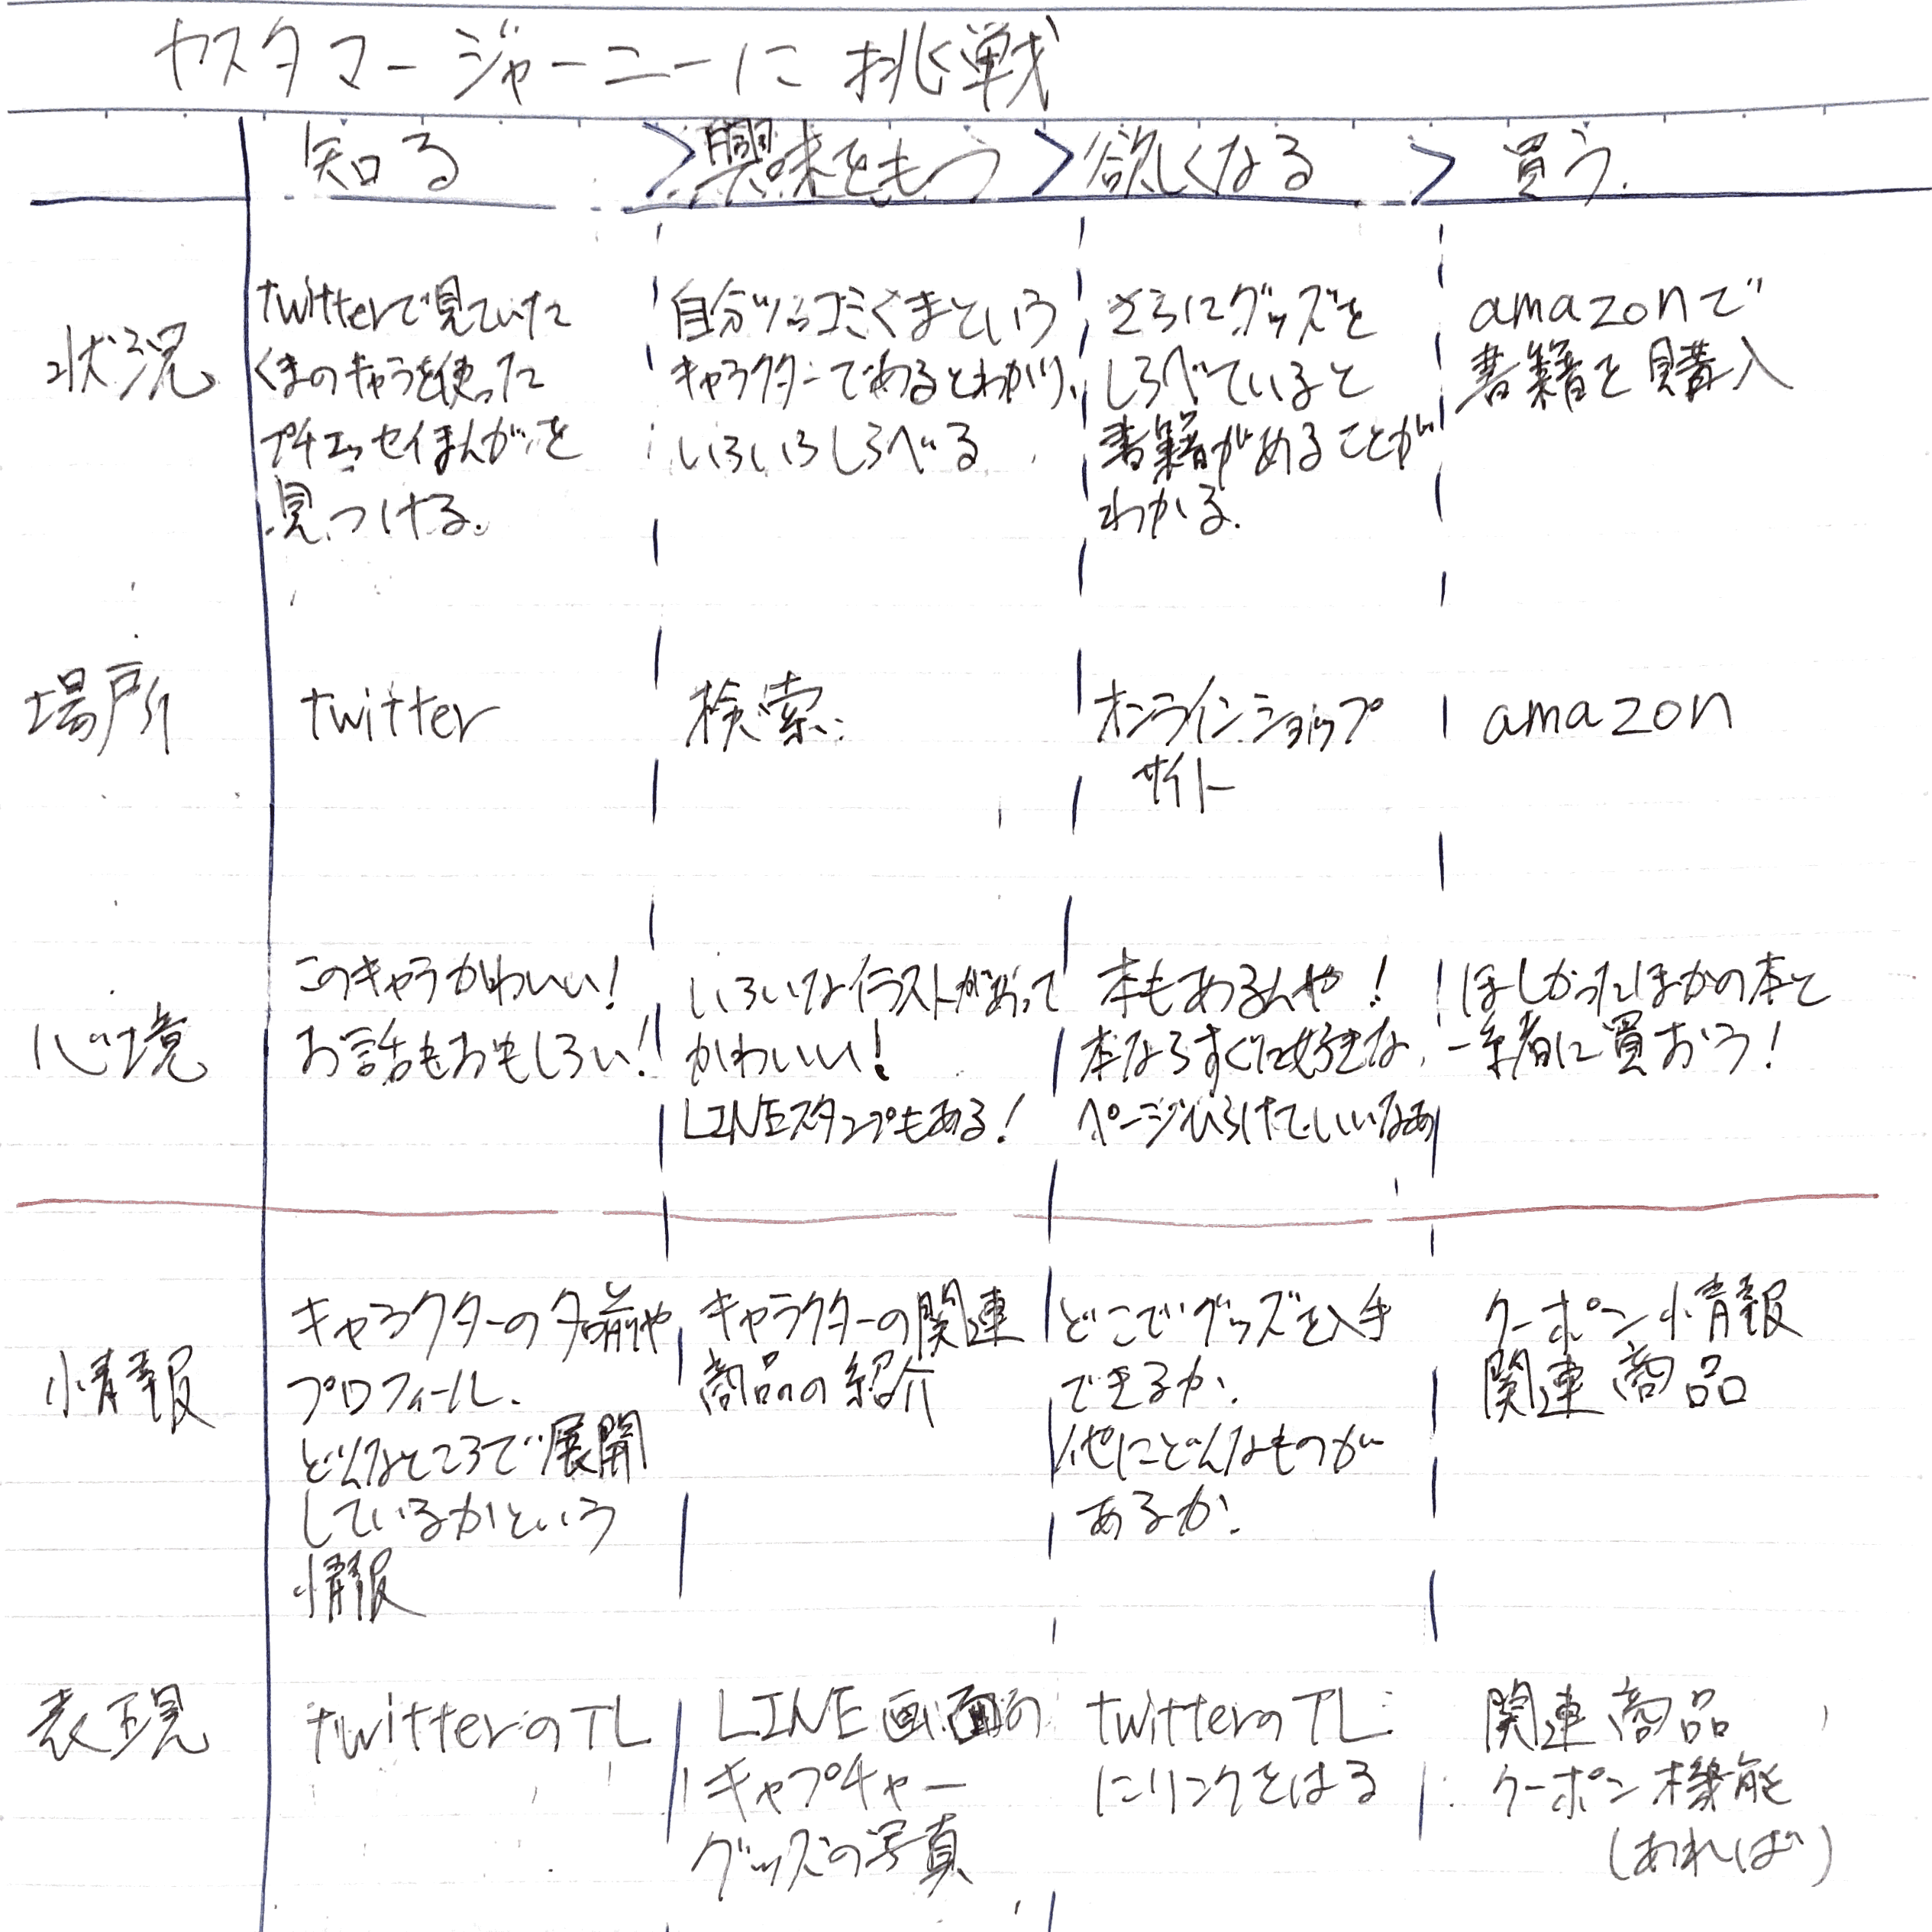 カスタマージャーニーに挑戦
知る > 興味をもう > 欲しくなる > 買う.
状況
twitterで見ていた
くまのキャラを使った
プチエッセイまんがを
見つける.
自分ツッコミくまという
キャラクターであるとわかり、
いろいろしらべる
さらにグッズを
しらべていると
書籍があることが
わかる.
amazonで
書籍を購入
場所
twitter
検索
オンラインショップ
サイト
amazon
心境
このキャラかわいい!
お話もおもしろい!
いろいろなイラストがあって
かわいい!
LINEスタンプもある!
本もあるんや!
本ならすぐに好きな
ページひらけていいなあ
ほしかったほかの本と
一緒に買おう!
情報
キャラクターの名前や
プロフィール、
どんなところで展開
しているかという
情報
キャラクターの関連
商品の紹介
どこでグッズを入手
できるか.
他にどんなものが
あるか.
クーポン情報
関連商品
表現
twitterのTL
LINE画面の
キャプチャー
グッズの写真
twitterのTL
にリンクをはる
関連商品
クーポン機能
(あれば)